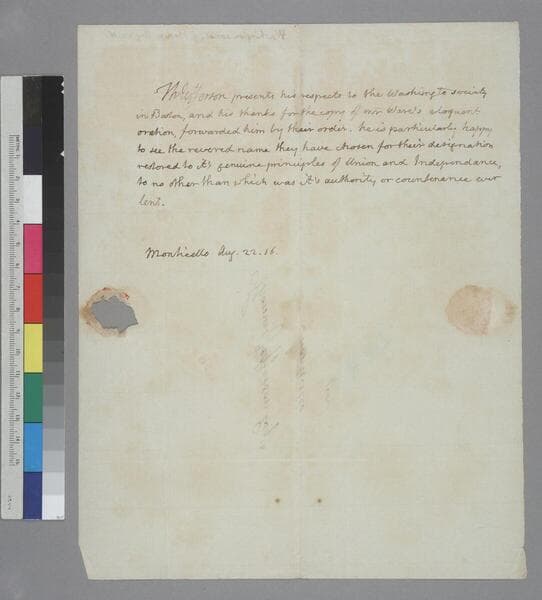 Th: Jefferson presents his respects to the Washington society
in Boston, and his thanks for the copy of mr Ware's eloquent
oration, forwarded him by their order. he is particularly happy
to see the revered name they have chosen for their designation
restored to it's genuine principles of Union and Independance,
to no other than which was it's authority or countenance ever
lent.
Monticello Aug. 22. 16.